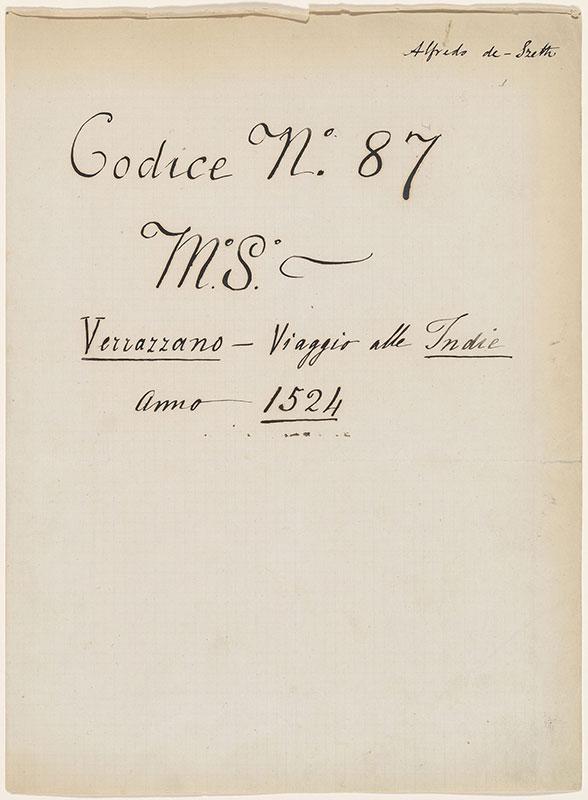 Alfredo de - Szeth
Codice N.º 87
M.º S.º
Verrazzano — Viaggio alle Indie
Anno — 1524